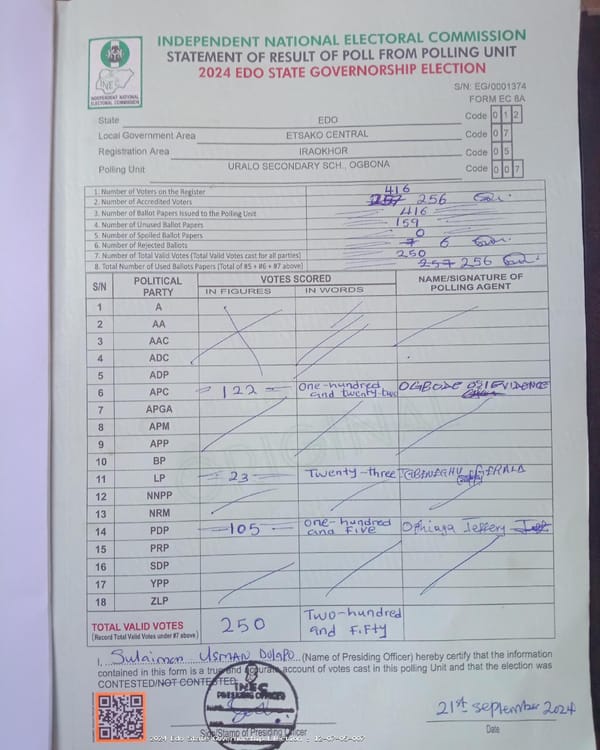 INDEPENDENT NATIONAL ELECTORAL COMMISSION
STATEMENT OF RESULT OF POLL FROM POLLING UNIT
2024 EDO STATE GOVERNORSHIP ELECTION
INEC
INDEPENDENT NATIONAL
ELECTORAL COMMISSION
S/N: EG/0001374
FORM EC 8A
State EDO Code 0 1 2
Local Government Area ETSAKO CENTRAL Code 0 7
Registration Area IRAOKHOR Code 0 5
Polling Unit URALO SECONDARY SCH., OGBONA Code 0 0 7
1. Number of Voters on the Register 416
2. Number of Accredited Voters 257 256
3. Number of Ballot Papers Issued to the Polling Unit 416
4. Number of Unused Ballot Papers 159
5. Number of Spoiled Ballot Papers 0
6. Number of Rejected Ballots 7 6
7. Number of Total Valid Votes (Total Valid Votes cast for all parties) 250
8. Total Number of Used Ballots Papers (Total of #5 + #6 + #7 above) 257 256
S/N POLITICAL PARTY VOTES SCORED NAME/SIGNATURE OF POLLING AGENT
IN FIGURES IN WORDS
1 A
2 AA
3 AAC
4 ADC
5 ADP
6 APC 122 One-hundred and twenty-two OGBODE OSI EVIDENCE
7 APGA
8 APM
9 APP
10 BP
11 LP 23 Twenty-three GERALD
12 NNPP
13 NRM
14 PDP 105 One-hundred and Five Jeffery
15 PRP
16 SDP
17 YPP
18 ZLP
TOTAL VALID VOTES 250 Two-hundred and Fifty
(Record Total Valid Votes under #7 above)
I, Sulaimon USMAN DOLAPO (Name of Presiding Officer) hereby certify that the information
contained in this form is a true and accurate account of votes cast in this polling Unit and that the election was
CONTESTED/NOT CONTESTED.
INEC
PRESIDING OFFICER
Sign/Stamp of Presiding Officer
21st September 2024
Date